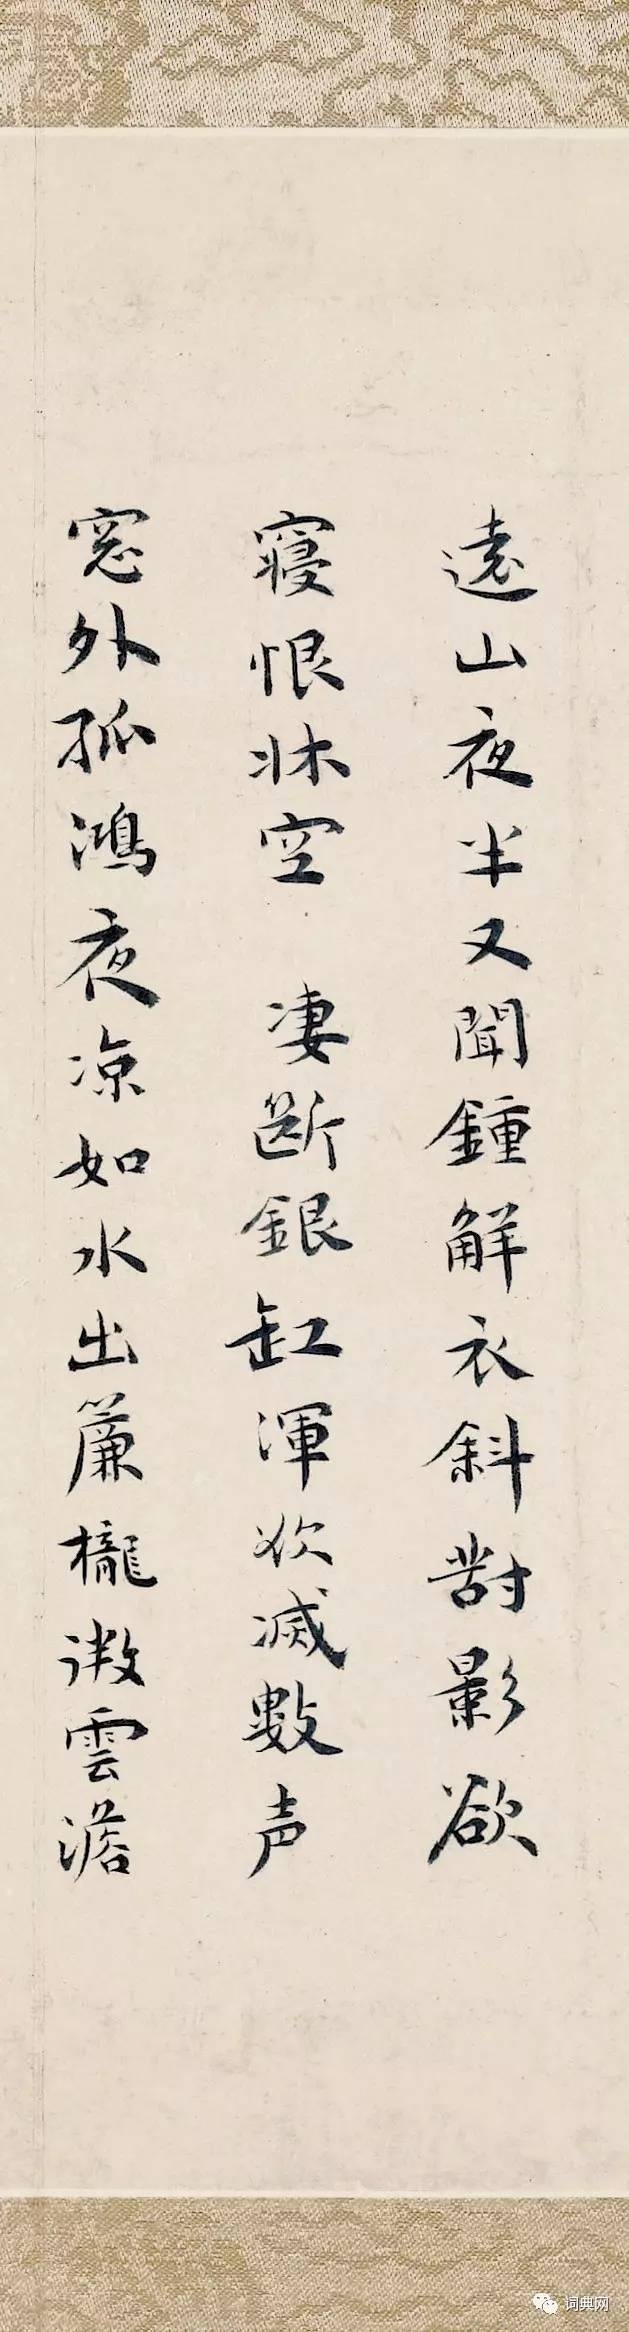 遠山夜半又聞鍾解衣斜對影欲
寢恨牀空　凄斷銀缸渾欲滅數声
窓外孤鴻夜凉如水出簾櫳微雲澹
词典网